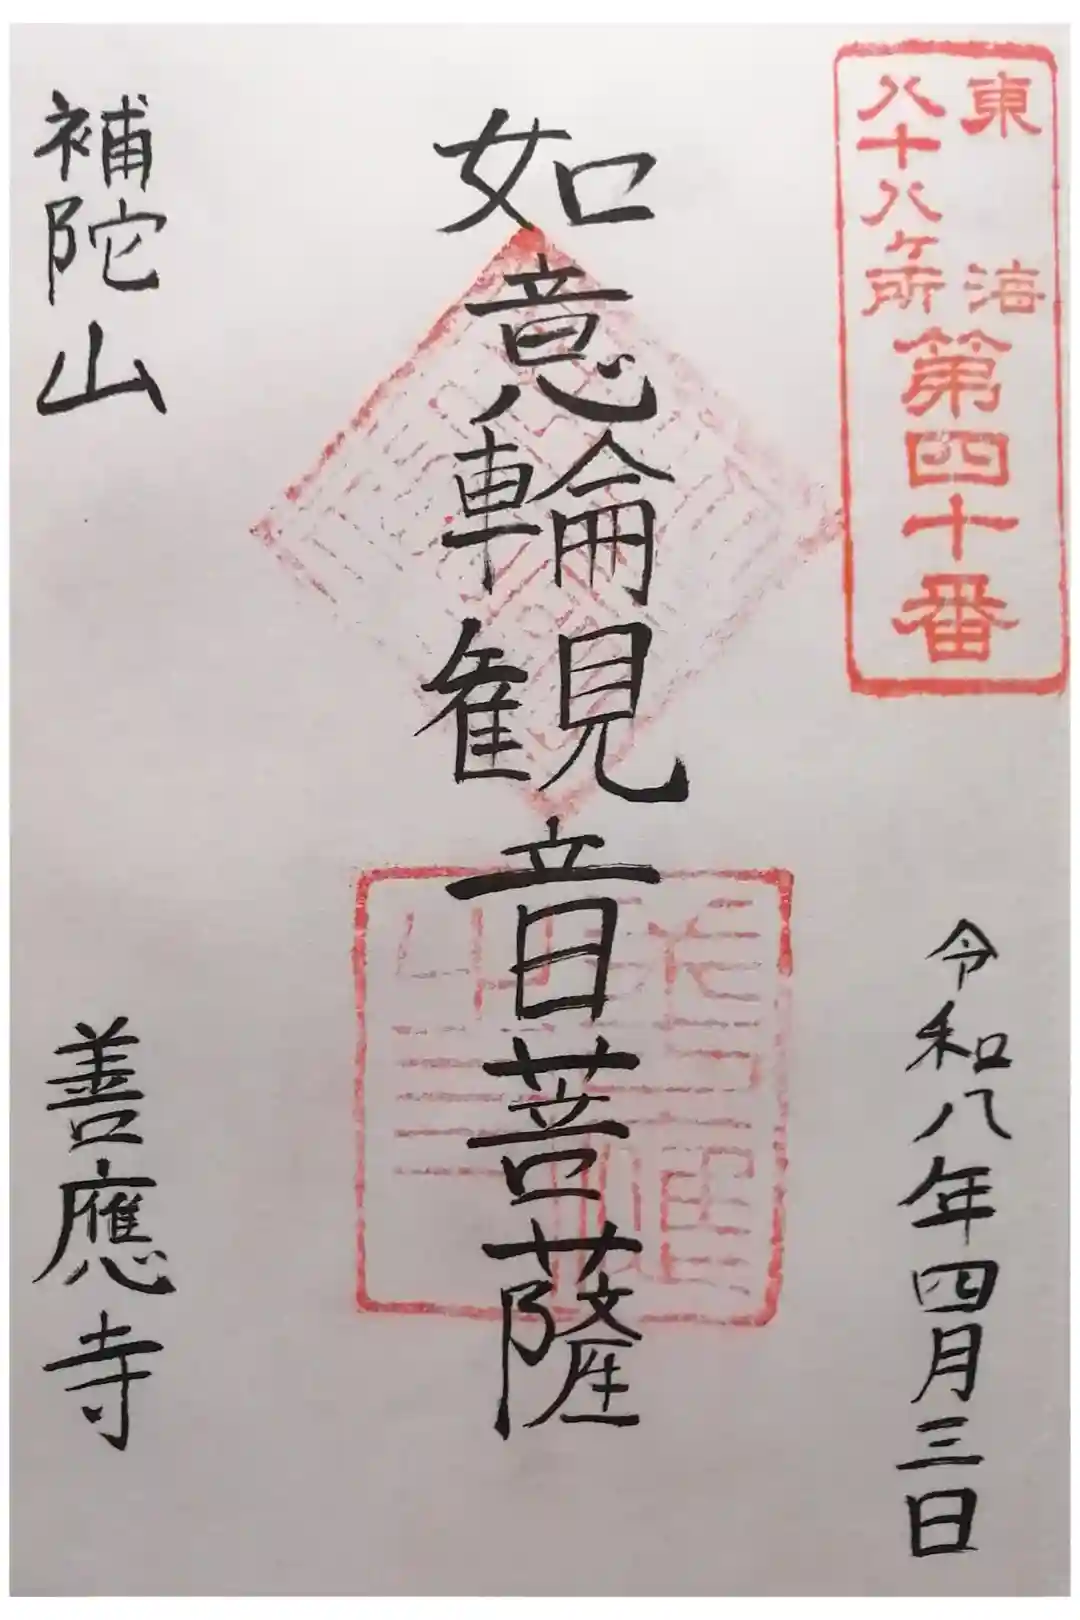 東海
八十八ケ所
第四十番
令和八年四月三日
如意輪観音菩薩
補陀山
善應寺